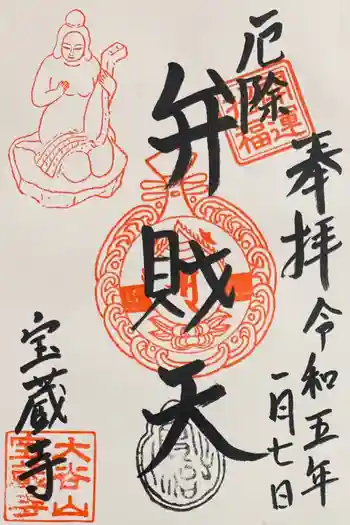 厄除
奉拝
令和五年
一月七日
弁財天
宝蔵寺
開運
招福
大谷山
宝蔵寺